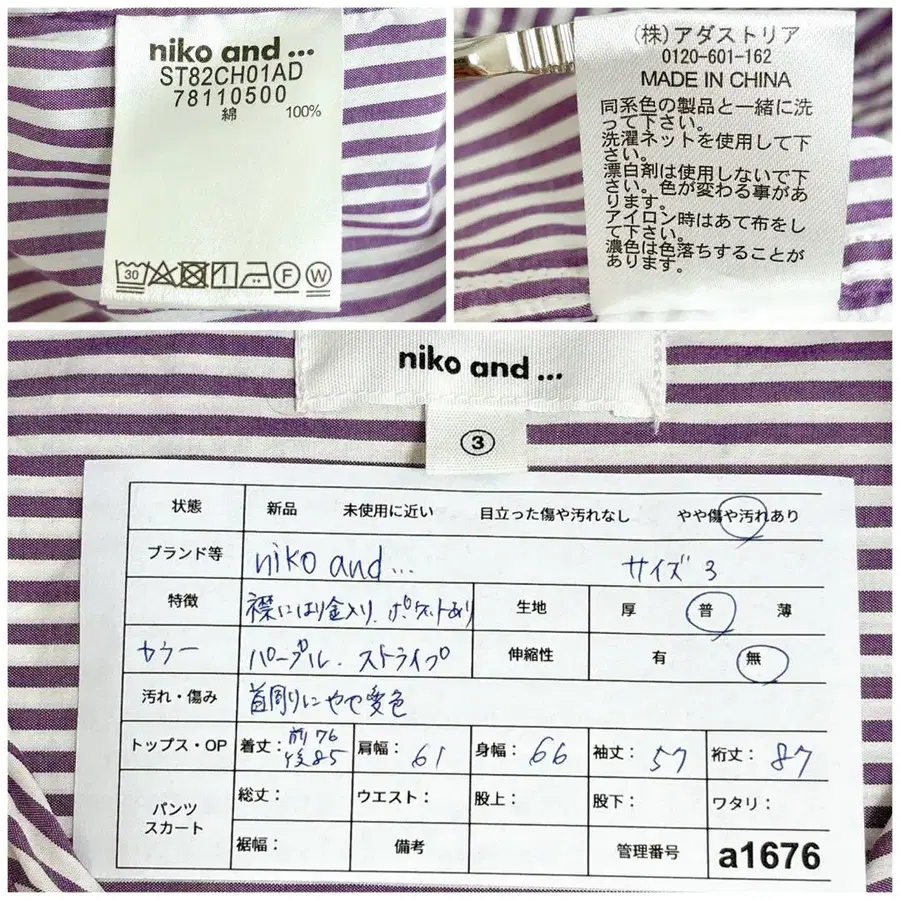 niko and ...
ST82CH01AD
78110500
綿 100%
30
F W
(株)アダストリア
0120-601-162
MADE IN CHINA
同系色の製品と一緒に洗
って下さい。
洗濯ネットを使用して下
さい。
漂白剤は使用しないで下
さい。色が変わる事があ
ります。
アイロン時はあて布をし
て下さい。
濃色は色落ちすることが
あります。
niko and ...
3
状態 新品 未使用に近い 目立った傷や汚れなし やや傷や汚れあり
ブランド等 niko and... サイズ 3
特徴 襟にはり金入り、ポケットあり 生地 厚 普 薄
カラー パープル・ストライプ 伸縮性 有 無
汚れ・傷み 首周りにやや変色
トップス・OP 着丈: 前76 後85 肩幅: 61 身幅: 66 袖丈: 57 裄丈: 87
パンツ スカート 総丈: ウエスト: 股上: 股下: ワタリ:
裾幅: 備考 管理番号 a1676